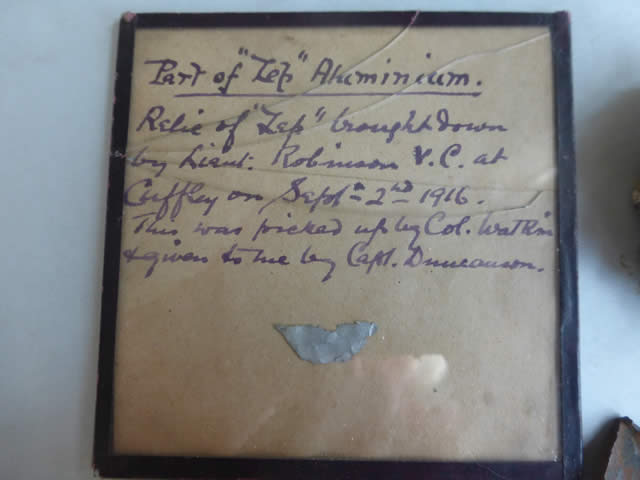 Part of "Zep" Aluminium.
Relic of "Zep" brought down
by Lieut. Robinson V.C. at
Cuffley on Septm 2nd 1916.
This was picked up by Col. Watkin
& given to me by Capt. Duncanson.